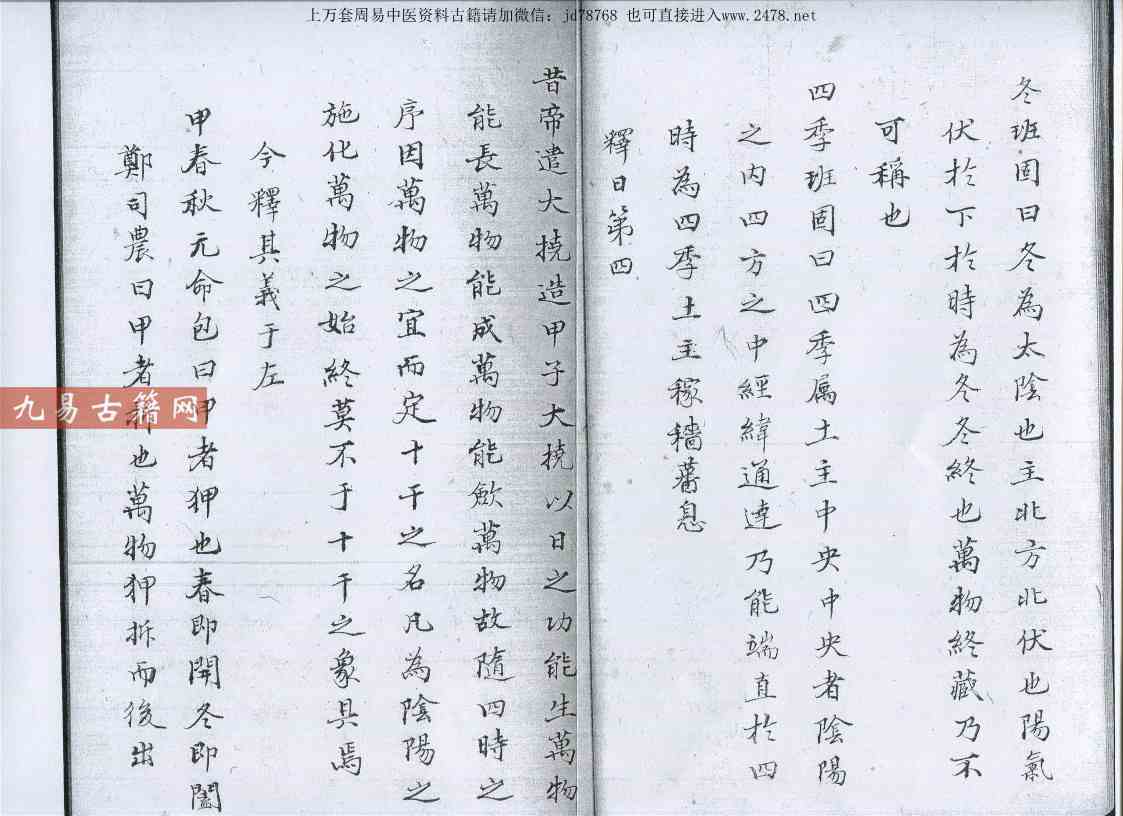 上万套周易中医资料古籍请加微信：jd78768 也可直接进入www.2478.net
冬班固曰冬為太陰也主北方北伏也陽氣
伏於下於時為冬冬終也萬物終藏乃不
可稱也
四季班固曰四季属土主中央中央者陰陽
之内四方之中經緯通達乃能端直於四
時為四季土主稼穡蕃息
釋日第四
昔帝遣大撓造甲子大撓以日之功能生萬物
能長萬物能成萬物能斂萬物故隨四時之
序因萬物之宜而定十干之名凡為陰陽之
施化萬物之始終莫不于十干之象具焉
今釋其義于左
甲春秋元命包曰甲者狎也春即開冬即闔
鄭司農曰甲者 也萬物狎拆而後出
九易古籍网